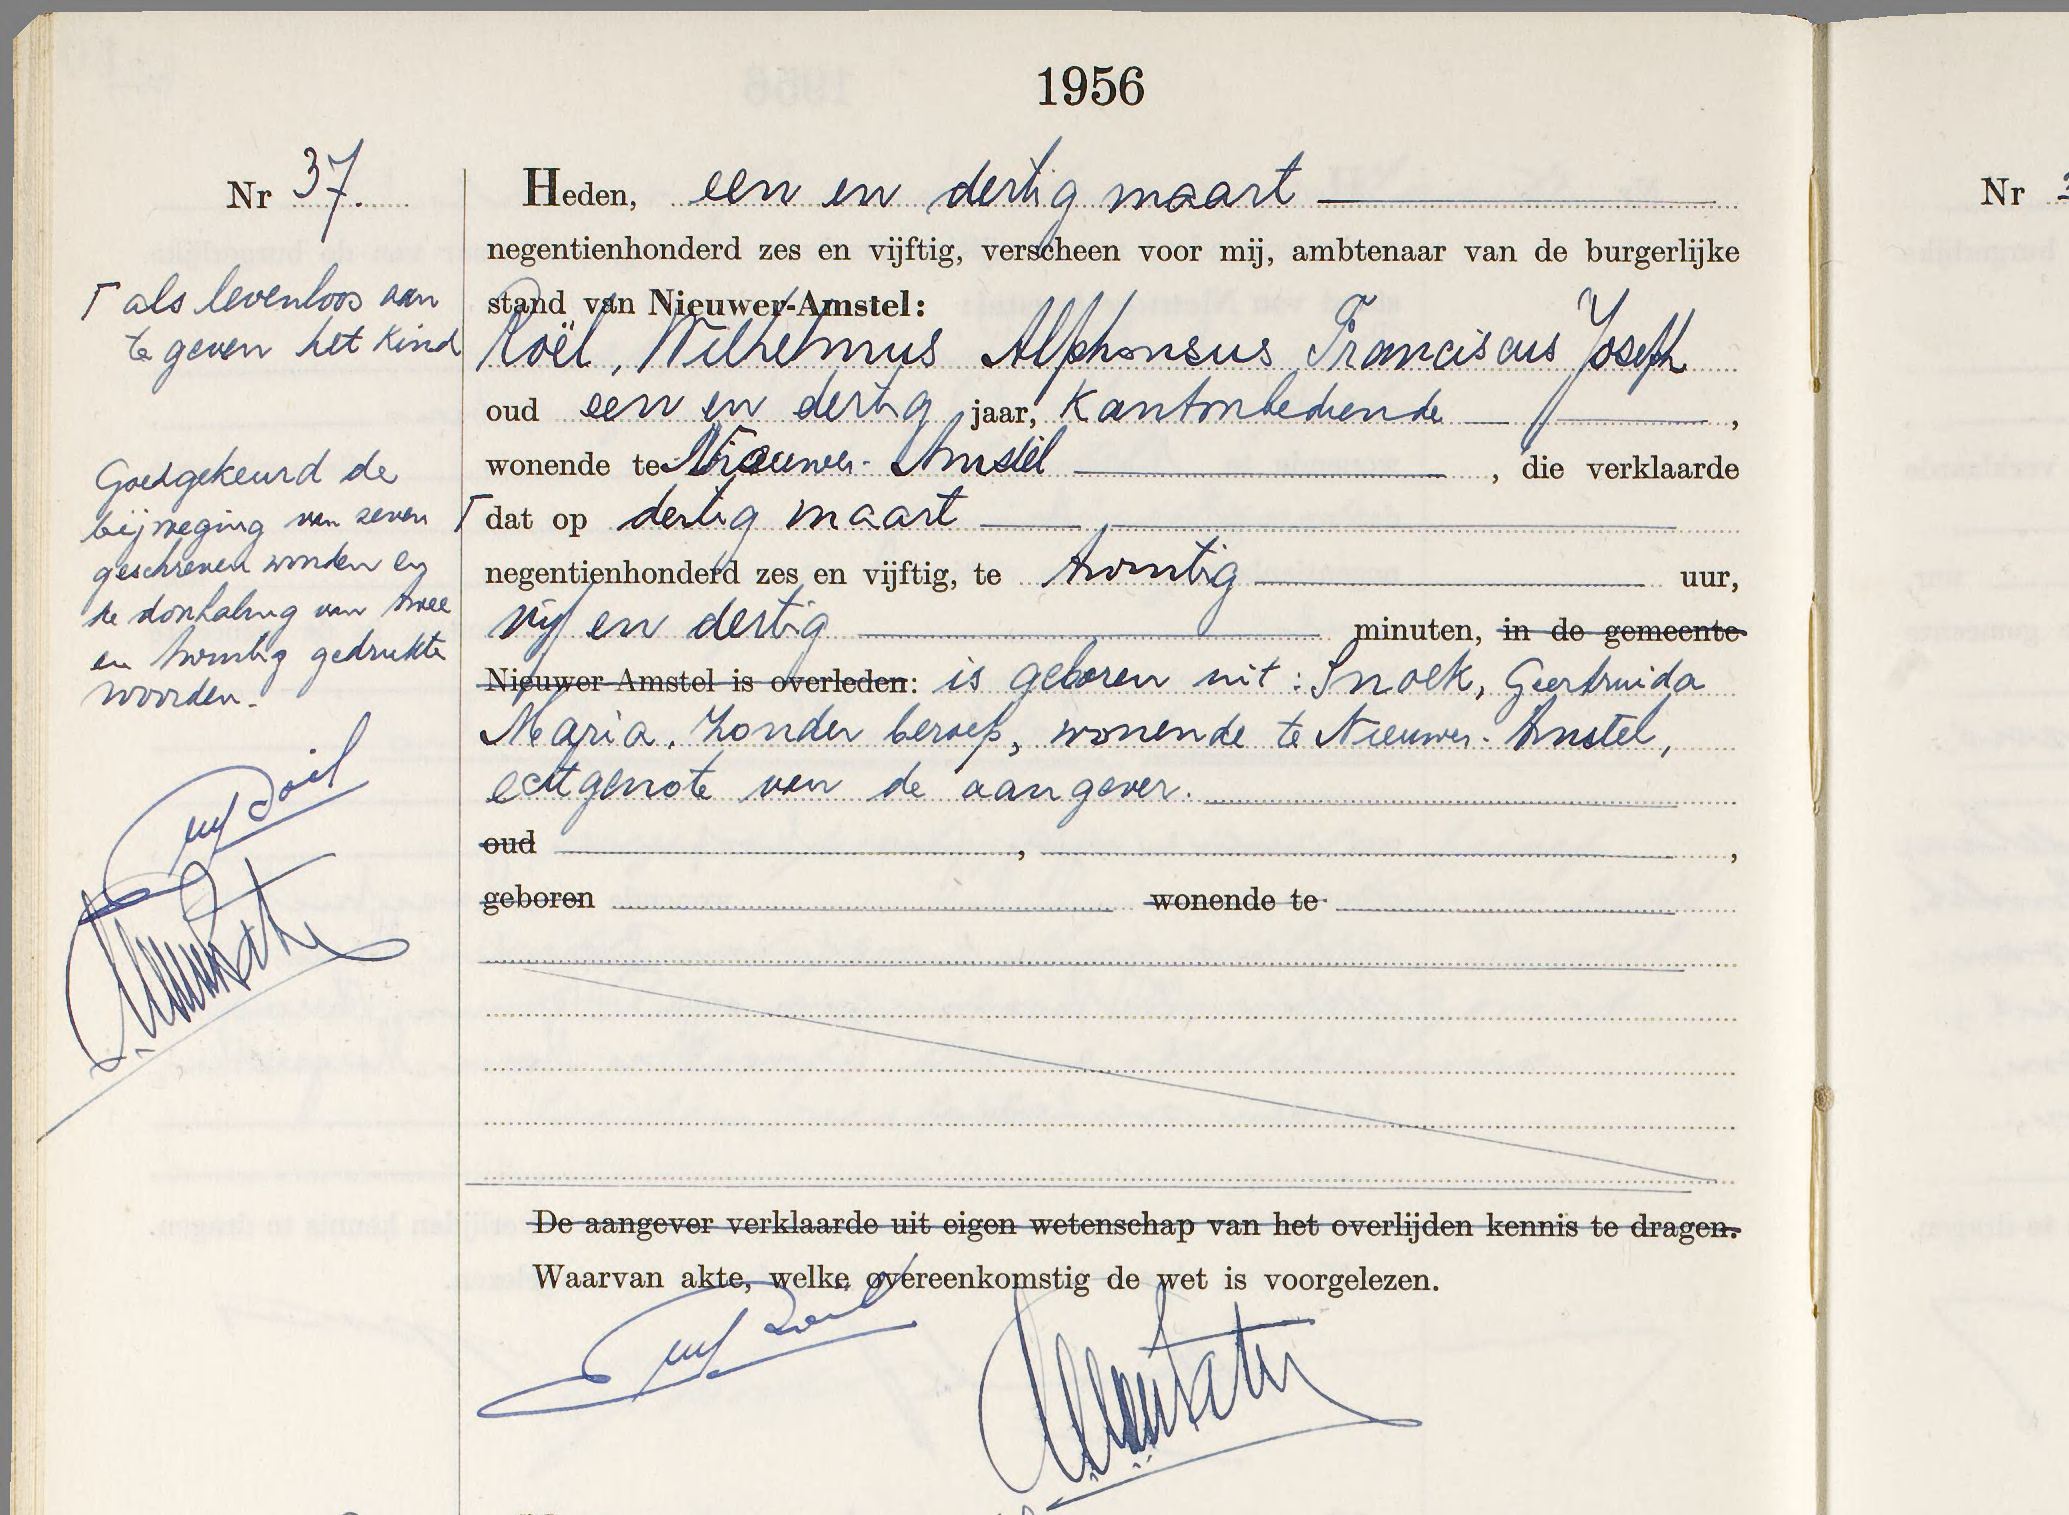 1956
Nr 37.
Heden, een en dertig maart
negentienhonderd zes en vijftig, verscheen voor mij, ambtenaar van de burgerlijke
stand van Nieuwer-Amstel:
Roël, Wilhelmus Alphonsus Franciscus Joseph
oud een en dertig jaar, Kantoorbediende,
wonende te Nieuwer-Amstel, die verklaarde
Γ dat op dertig maart
negentienhonderd zes en vijftig, te twintig uur,
vijf en dertig minuten, in de gemeente
Nieuwer-Amstel is overleden: is geboren uit: Snoek, Geertruida
Maria, zonder beroep, wonende te Nieuwer-Amstel,
echtgenote van de aangever.
oud , ,
geboren wonende te
De aangever verklaarde uit eigen wetenschap van het overlijden kennis te dragen.
Waarvan akte, welke overeenkomstig de wet is voorgelezen.
Γ als levenloos aan
te geven het kind
Goedgekeurd de
bijvoeging van zeven
geschreven woorden en
de doorhaling van twee
en twintig gedrukte
woorden.
Nr